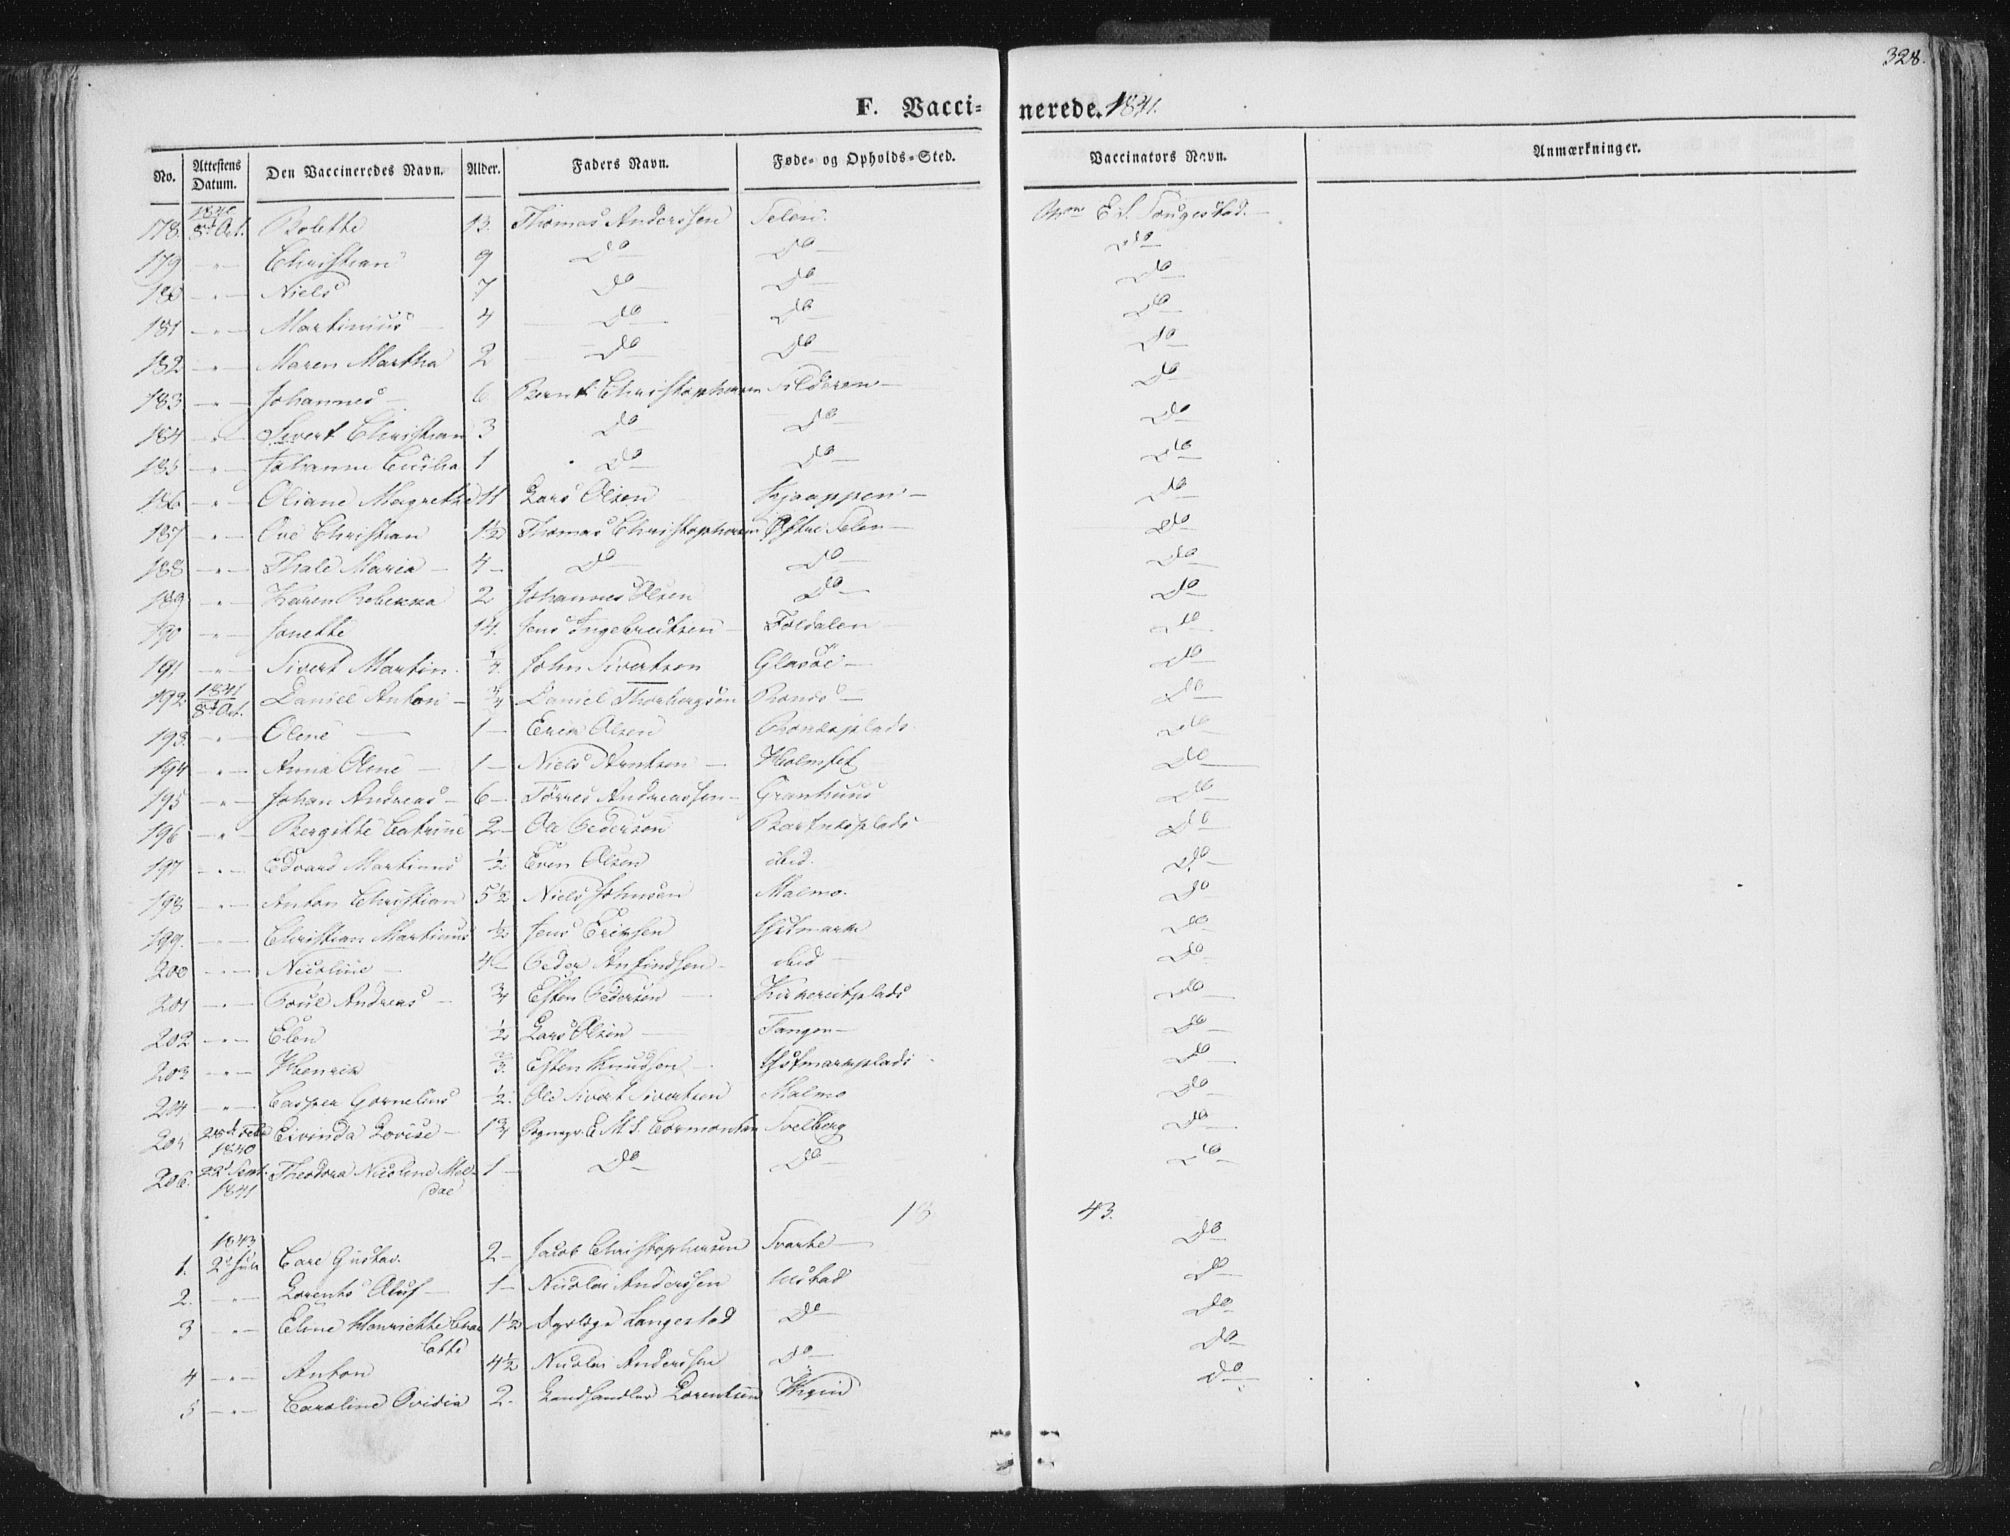 328.
F. Vaccinerede. 1841.
No. Attestens Datum. Den Vaccineredes Navn. Alder. Faders Navn. Føde- og Opholds-Sted. Vaccinators Navn. Anmærkninger.
178. 1840 8d Oct. Bolette 13. Thomas Anderssen Selen. E. S. Sougestad.
179 -"- Christian 9 Do Do Do
180 -"- Niels 7 Do Do Do
181 -"- Martinius 4 Do Do Do
182 -"- Maren Martha 2 Do Do Do
183 -"- Johannes 6 Bernt Christophersen Tilderen Do
184 -"- Sivert Christian 3 Do Do Do
185 -"- Johanna Cecilia 1 Do Do Do
186 -"- Oliane Magrethe 11 Lars Olsen Do
187 -"- Ove Christian 1½ Thomas Christophersen Østre Selen Do
188 -"- Thale Maria 4 Do Do Do
189 -"- Karen Rebekka 2 Johannes Olsen Do Do
190 -"- Jonette 14. Jens Ingebreitsen Foldalen Do
191 -"- Sivert Martin John Sivertsen Glasøe Do
192 1841 8d Oct. Daniel Anton ¾ Daniel Thorbergsen Do
193. -"- Olene 1 Erik Olsen Do
194 -"- Anna Oline 1 Niels Arntsen Holmset Do
195 -"- Johan Andreas 6 Tørres Andreassen Granhuus Do
196 -"- Bergitte Catrine 2 Ole Pedersen Do
197 -"- Edvard Martinus ½ Even Olsen ibid. Do
198 -"- Anton Christian 5½ Niels Johnsen Malmo. Do
199. -"- Christian Martinus ½ Jens Eriksen Do
200 -"- Nicoline 4 Peder Anfindsen ibid Do
201 -"- Poul Andreas ¾ Esten Pedersen Do
202 -"- Elen ½ Lars Olsen Tangen Do
203 -"- Henrik Esten Knudsen Do
204 -"- Casper Cornelius ½. Ole Sivert Sivertsen Malmo Do
205 1840 Eivinda Lovise 1¾ Sognepr. E. M. S. Cormontan Solberg Do
206. 22d Sept. 1841 Theodora Nicoline Mel- 1 Do Do Do
1843.
1. 1843 2d Juli Carl Gustav. 2 Jacob Christophersen Svarte Do
2. -"- Lorents Oluf 1 Nicolai Anderssen Ulstad Do
3 -"- Eline Henriette Char lotte 1½ Langestad Do Do
4 -"- Anton 4½ Nicolai Anderssen Do Do
5 -"- Caroline Ovidia 2. Landhandler Lorentsen Do